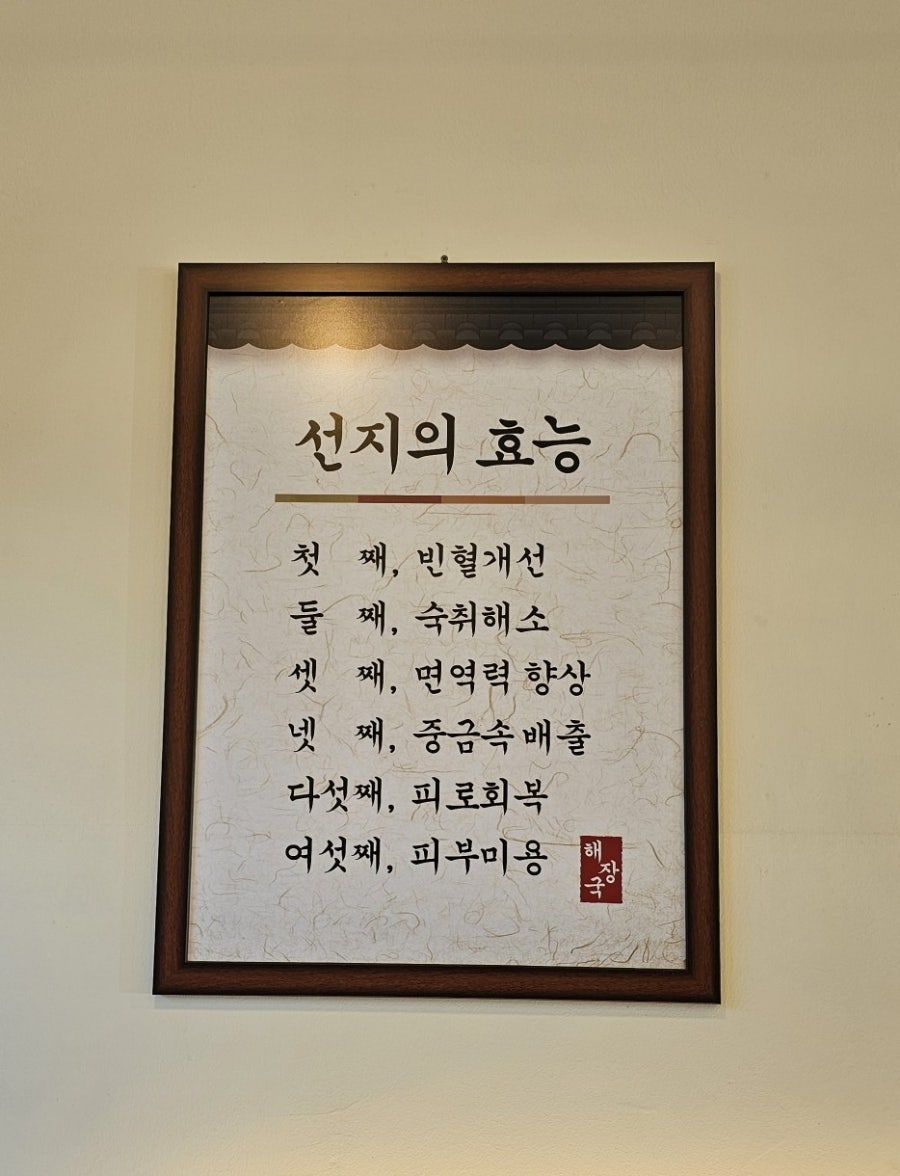 선지의 효능
첫 째, 빈혈개선
둘 째, 숙취해소
셋 째, 면역력 향상
넷 째, 중금속 배출
다섯째, 피로회복
여섯째, 피부미용
해장국